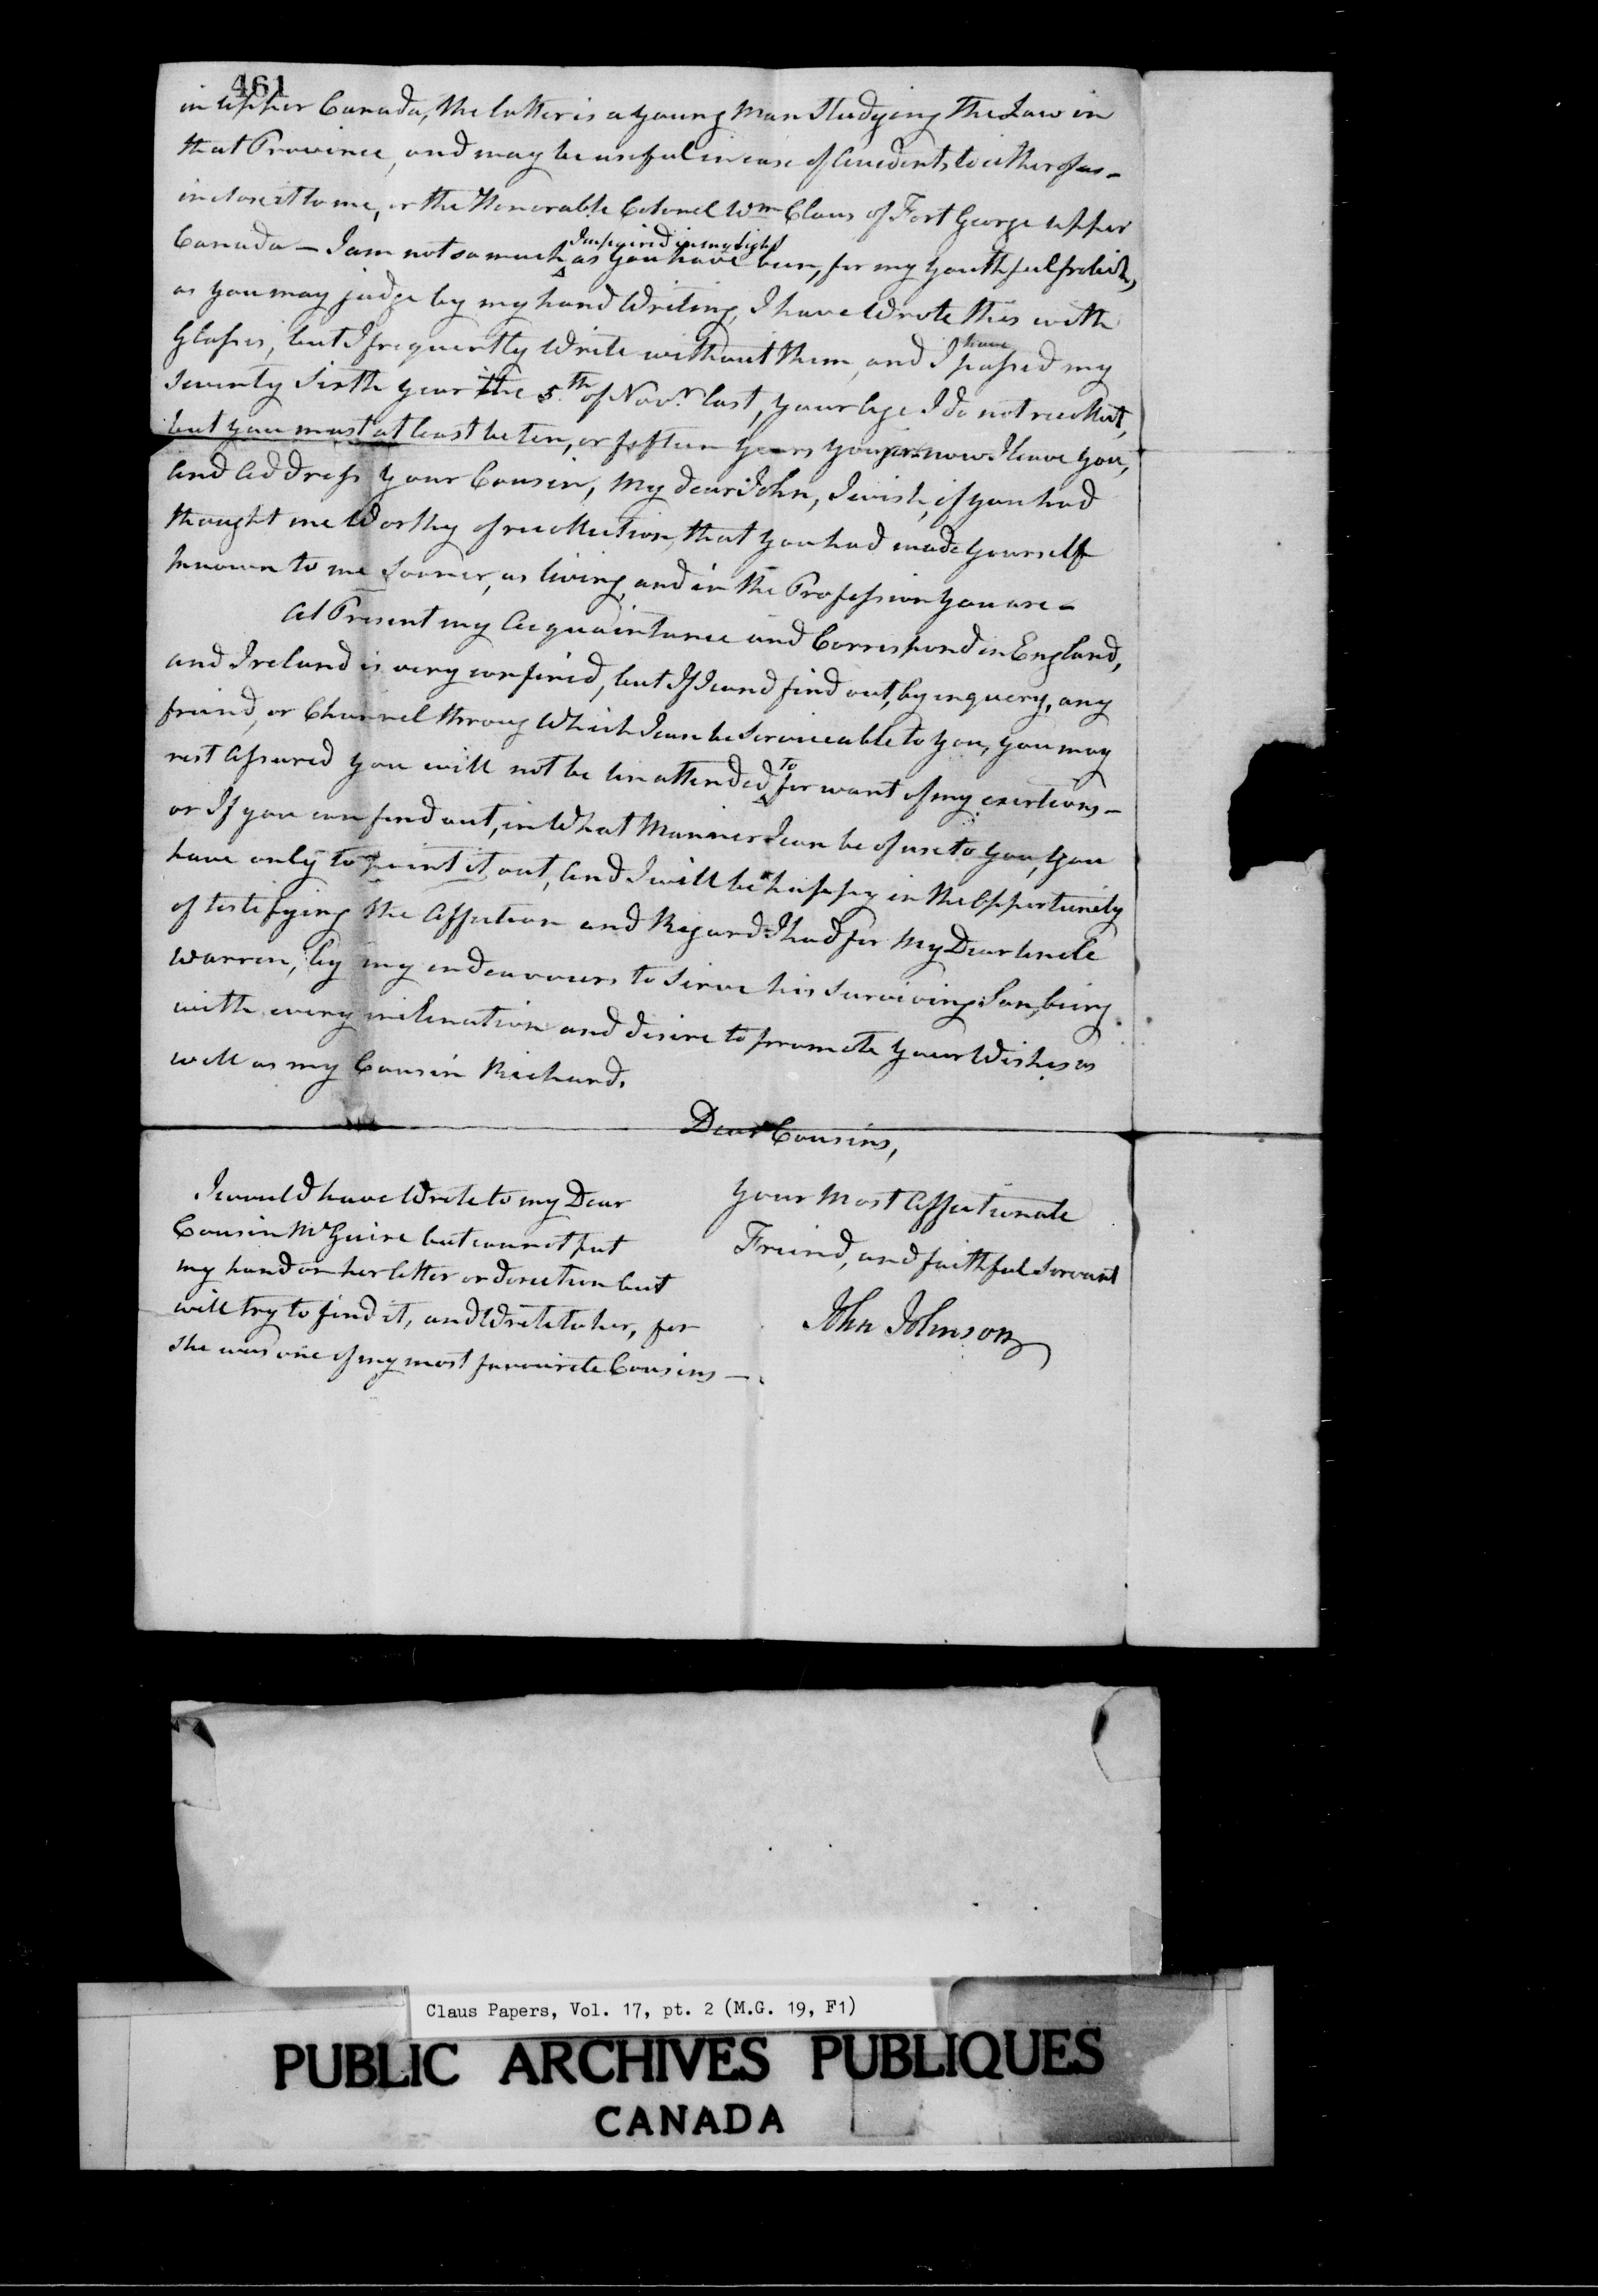 461
in Upper Canada, the latter is a young Man Studying The Law in
that Province, and may be useful in case of Accidents to either of us –
inclose it to me, or the Honorable Colonel Wm Claus of Fort George Upper
Canada – I am not so much Impaired in my Sight as you have been, for my youthful frolicks,
as you may judge by my hand Writing, I have Wrote this with
Glasses, but I frequently Write without them, and I have passed my
Seventy Sixth year the 5th of Novr last, your Age I do not recollect,
but you must at least be ten, or fifteen years younger now I leave you,
And Address your Cousin, My dear John, I wish, if you had
thought me Worthy of recollection, that you had made yourself
known to me sooner, as living, and in the Profession you are –
At Present my Acquaintance and Correspond in England,
and Ireland is very confined, but If I cand find out, by inquery, any
friend, or Channel throug Which I can be Serviceable to you, you may
rest Assured you will not be Unattended To for want of my exertions –
or If you can find out, in What Manner I can be of use to you, you
have only to point it out, And I will be happy in the Opportunity
of testifying the Affection and Regard I had for My Dear Uncle
Warren, by my endeavours to Serve his Surviving Son, being
with every inclination and desire to promote your Wishes as
well as my Cousin Richard.
Dear Cousins,
your Most Affectionate
Freind, and faithful Servant
John Johnson
I would have Wrote to my Dear
Cousin McGuire but cannot put
my hand on her letter or direction but
will try to find it, and Write to her, for
she was one of my most favourite Cousins –
Claus Papers, Vol. 17, pt. 2 (M.G. 19, F1)
PUBLIC ARCHIVES PUBLIQUES
CANADA